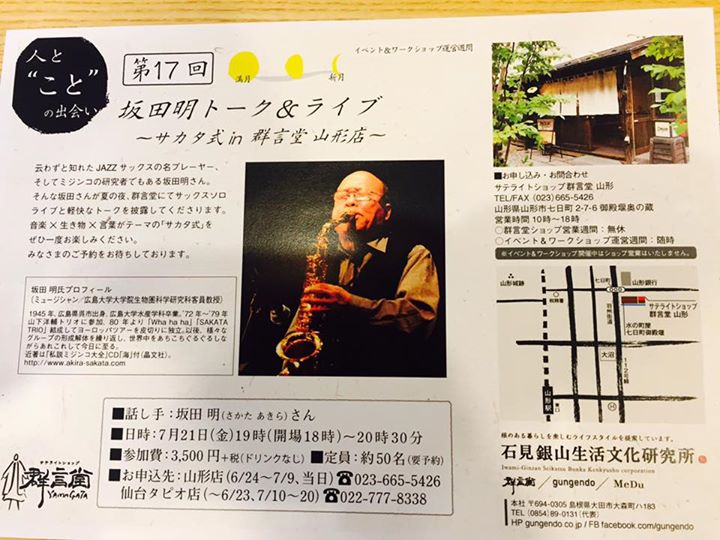 人と
“こと”
の出会い
第17回
満月
新月
イベント&ワークショップ運営週間
坂田明トーク&ライブ
～サカタ式 in 群言堂 山形店～
云わずと知れたJAZZサックスの名プレーヤー、
そしてミジンコの研究者でもある坂田明さん。
そんな坂田さんが夏の夜、群言堂にてサックスソロ
ライブと軽快なトークを披露してくださります。
音楽×生き物×言葉がテーマの「サカタ式」を
ぜひ一度お楽しみください。
みなさまのご予約をお待ちしております。
坂田 明氏プロフィール
(ミュージシャン/広島大学大学院生物圏科学研究科客員教授)
1945年、広島県呉市出身、広島大学水産学科卒業。'72年～'79年
山下洋輔トリオに参加。80年より「Wha ha ha」「SAKATA
TRIO」結成してヨーロッパツアーを皮切りに独立。以後、様々な
グループの形成解体を繰り返し、世界中をあちこちぐるぐるしな
がらあれこれして今日に至る。
近著は「私説ミジンコ大全」CD「海」付(晶文社)。
http://www.akira-sakata.com
■話し手:坂田 明(さかた あきら)さん
■日時:7月21日(金)19時(開場18時)～20時30分
■参加費:3,500円+税(ドリンクなし) ■定員:約50名(要予約)
■お申込先:山形店(6/24～7/9、当日)☎023-665-5426
仙台タピオ店(～6/23、7/10～20)☎022-777-8338
サテライトショップ
群言堂
YAMAGATA
■お申し込み・お問合わせ
サテライトショップ群言堂 山形
TEL/FAX (023)665-5426
山形県山形市七日町2-7-6 御殿堰奥の蔵
営業時間 10時～18時
○群言堂ショップ営業週間:無休
○イベント&ワークショップ運営週間:随時
※イベント&ワークショップ開催中はショップ営業はいたしません。
山形城跡
七日町
山形銀行
税務署
サテライトショップ
群言堂 山形
羽州街道
水の町屋
七日町御殿堰
大沼
112号線
山形駅
根のある暮らしを楽しむライフスタイルを提案しています。
石見銀山生活文化研究所
Iwami-Ginzan Seikatsu Bunka Kenkyusho corporation
群言堂 / gungendo / MeDu
本社 〒694-0305 島根県大田市大森町ハ183
TEL (0854)89-0131(代表)
HP gungendo.co.jp / FB facebook.com/gungendo